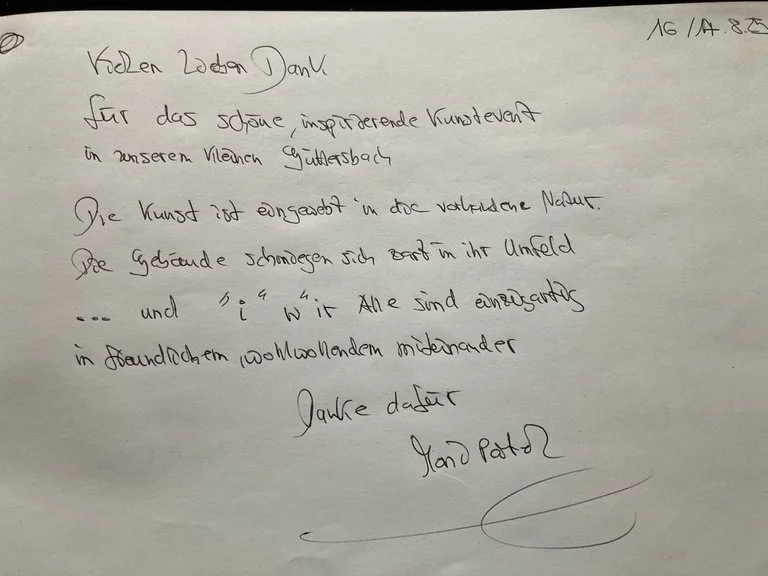 16/17.8.25
Vielen lieben Dank
für das schöne, inspirierende Kunstevent
in unserem kleinen Güttersbach
Die Kunst ist eingewebt in die Natur.
Die Gebäude schmiegen sich zart in ihr Umfeld
... und "i" wir Alle sind einzigartig
in freundlichem, wohlwollendem miteinander
Danke dafür